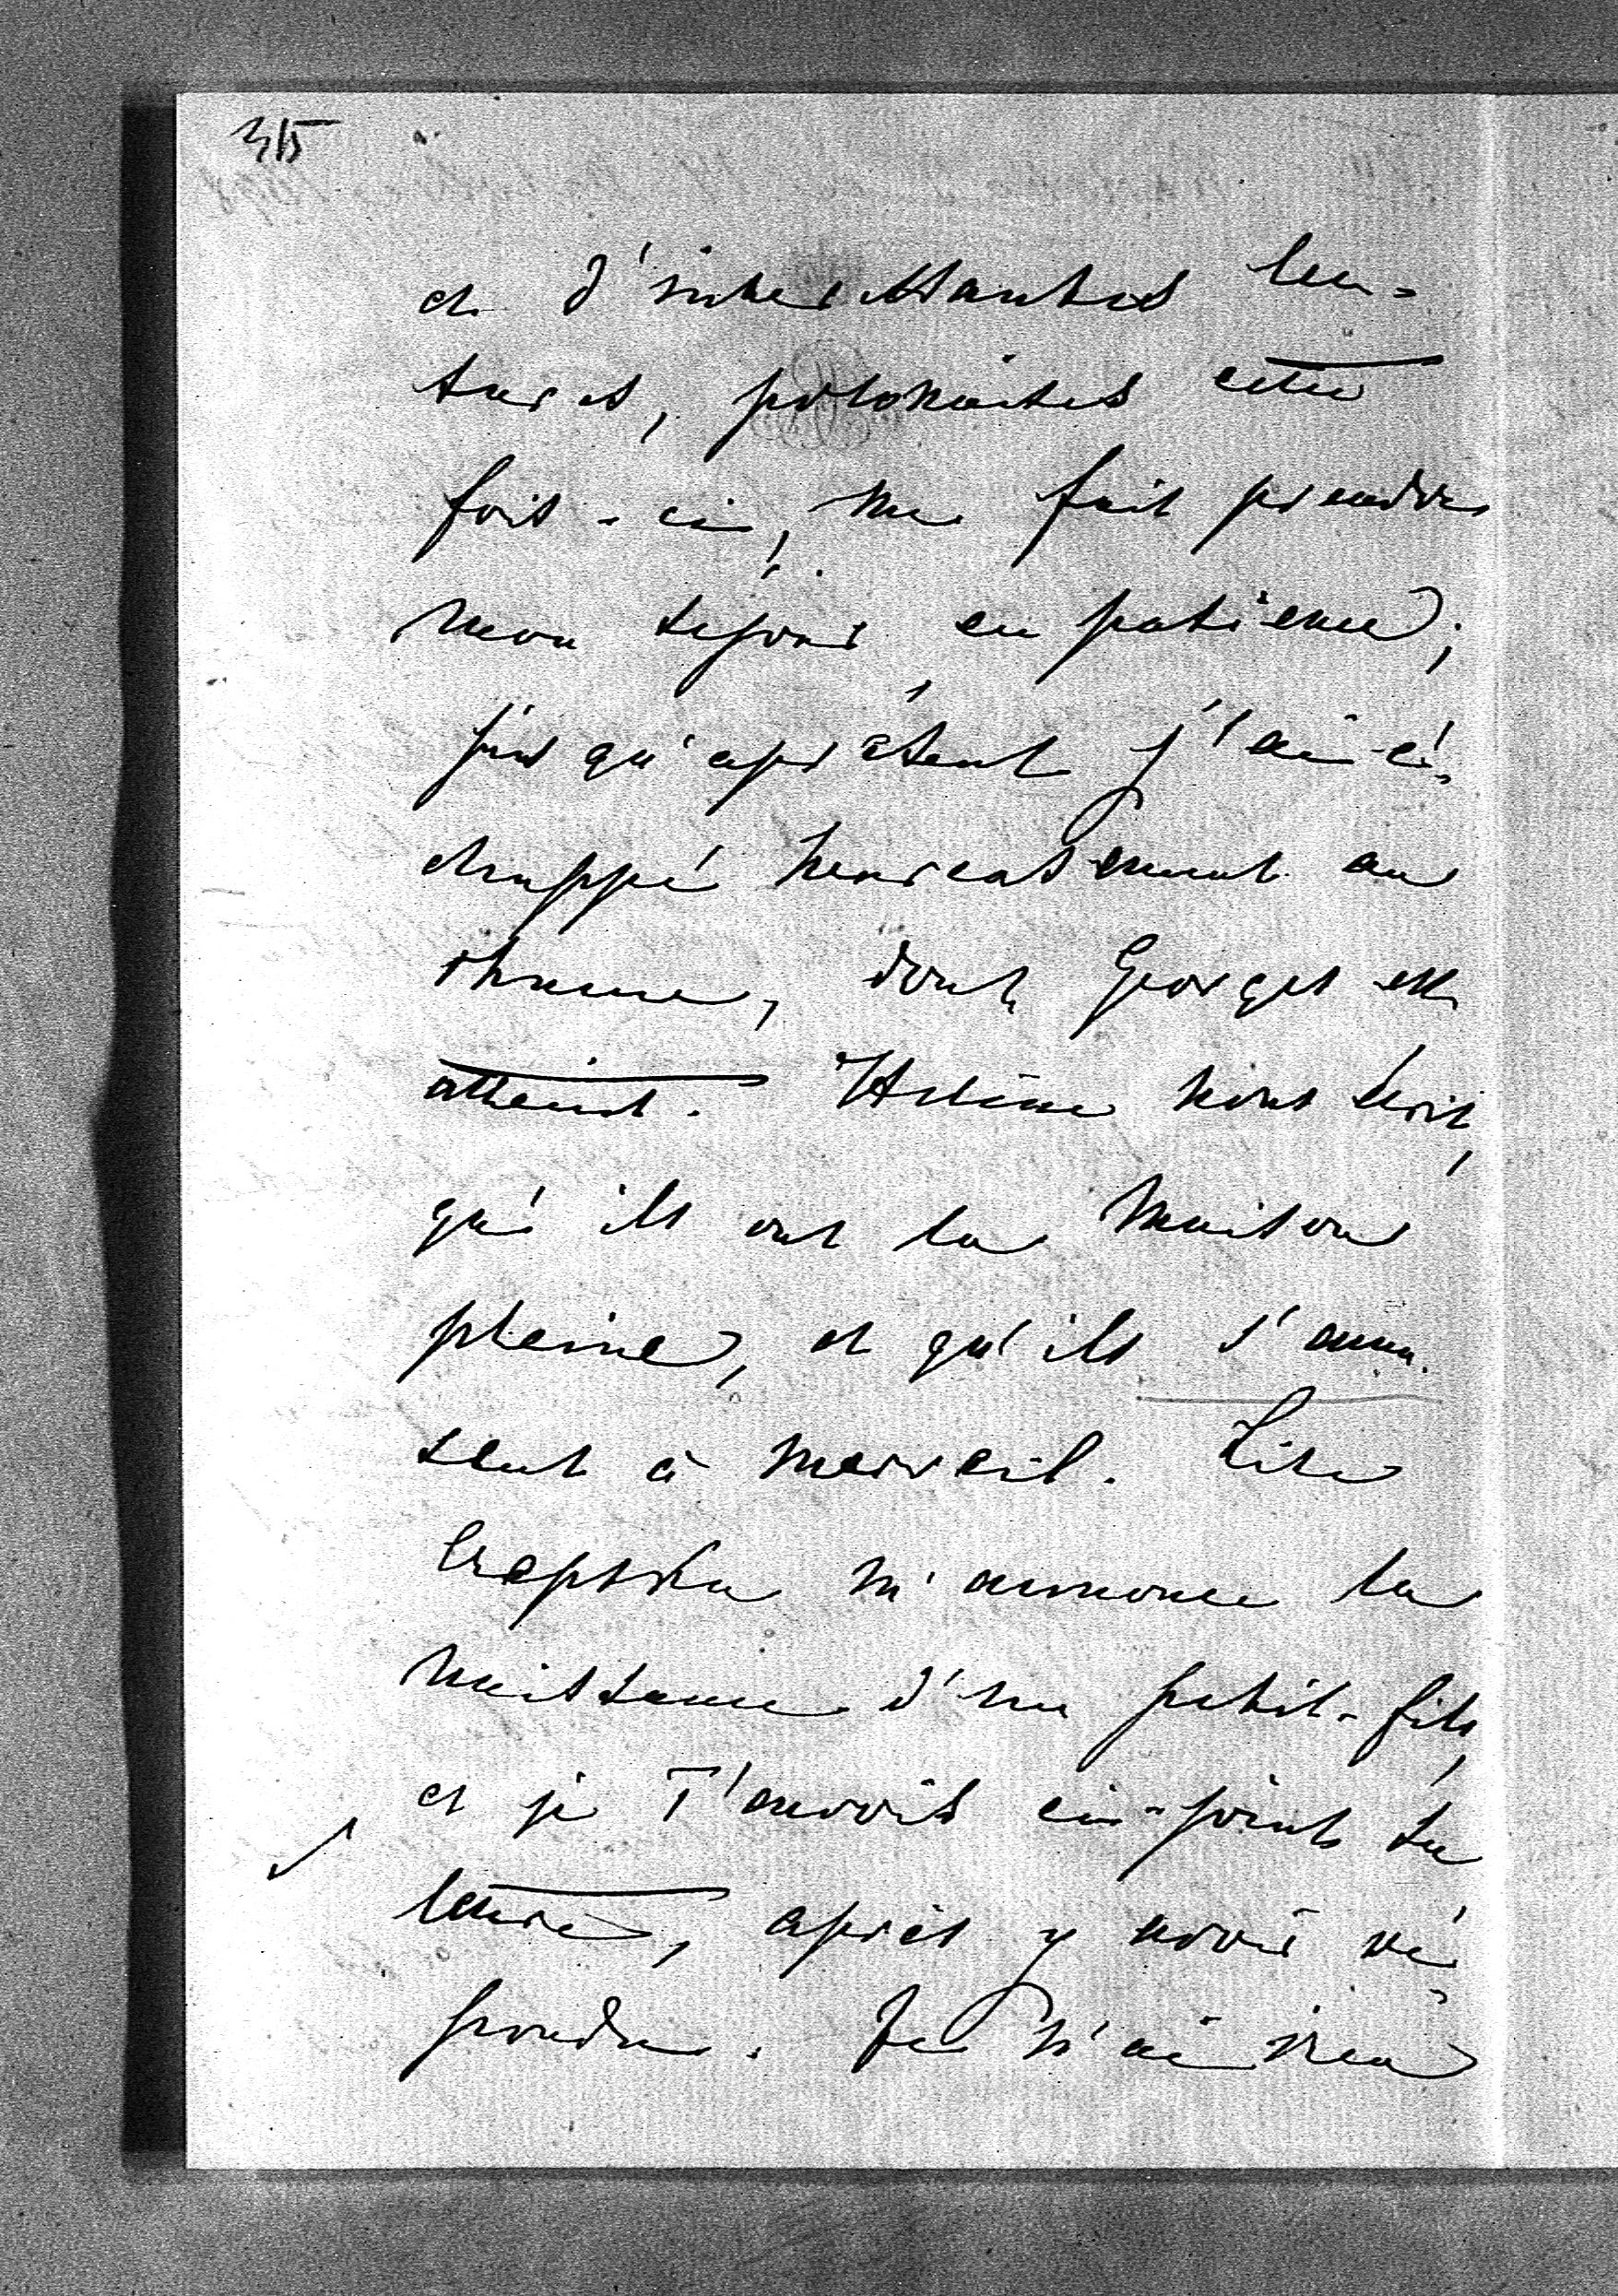 315
et d'interessantes lec-
tures, polonaises cette
fois-ci, me fait prendre
mon sejour en patience;
jusqu'aprésent j'ai é-
chappé heureusement au
rhume, dont Georges est
atteint. Hélène nous écrit,
qu'ils ont la maison
pleine, et qu'ils s'amu-
sent à merveil. Lise
m'annonce la
naissance d'un petit-fils,
et je T'envois ci-joint sa
lettre, après y avoir ré-
pondu. Je n'ai rien